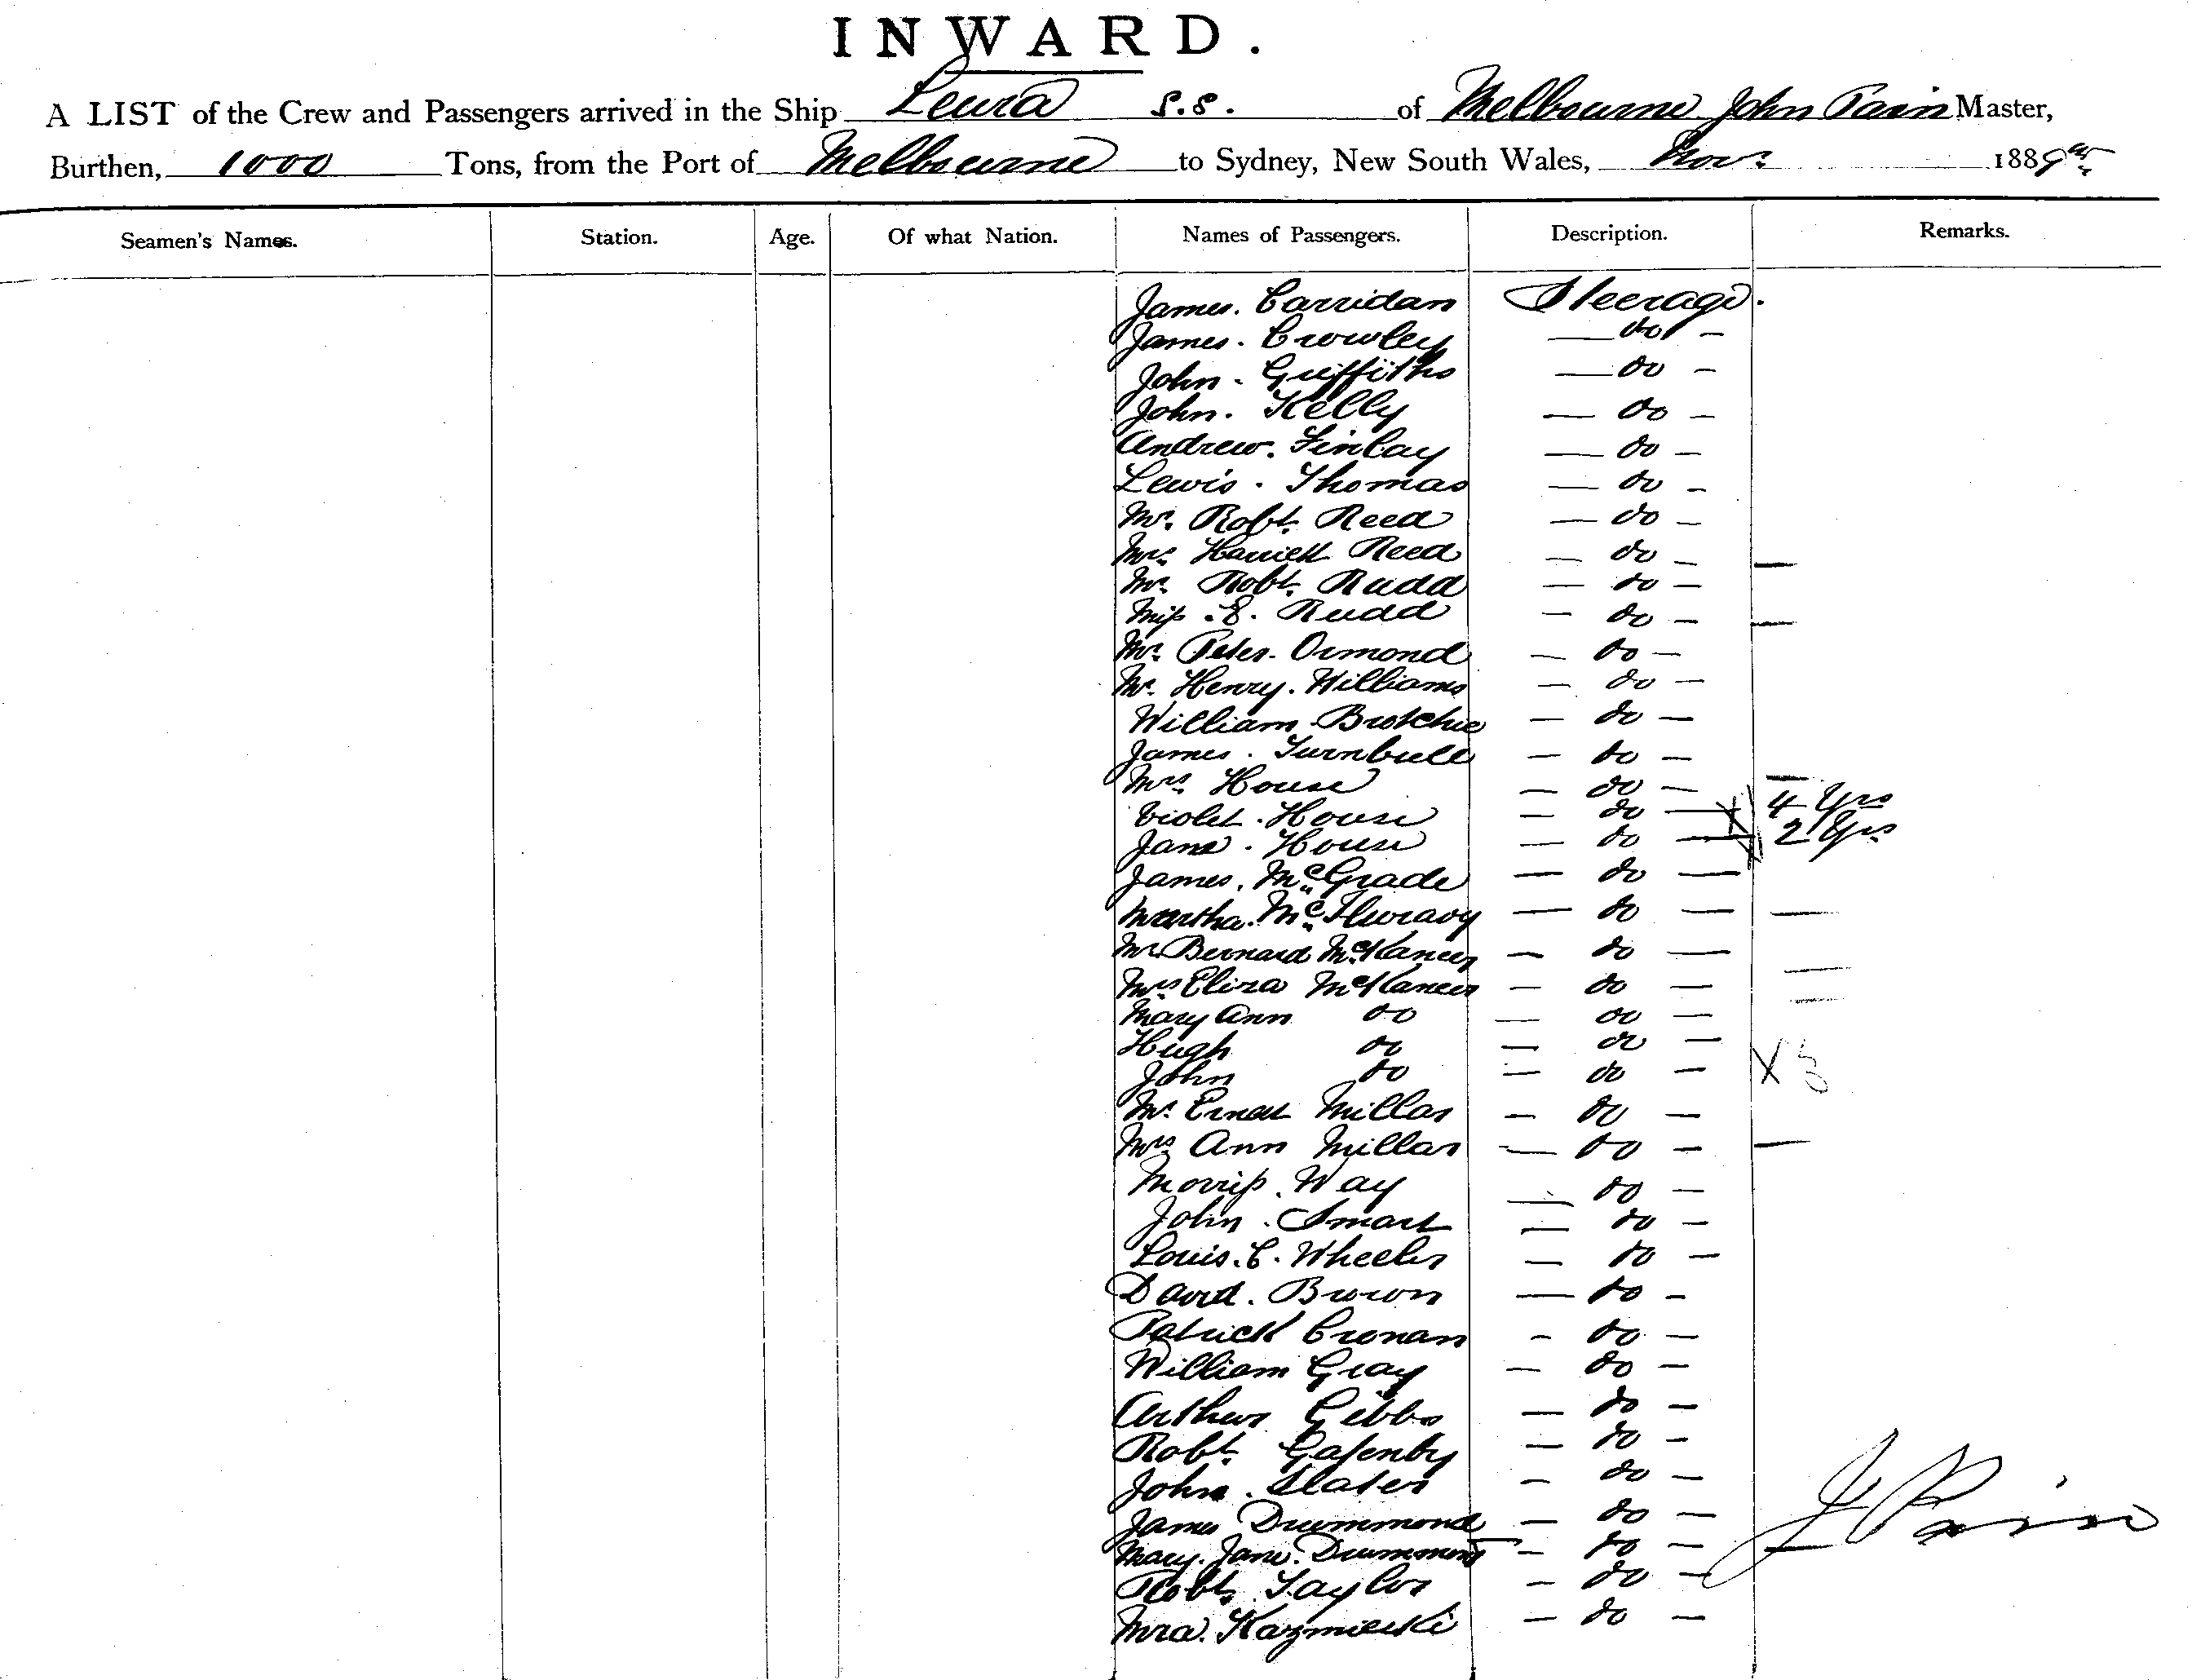 INWARD.
A LIST of the Crew and Passengers arrived in the Ship Leura S.S. of Melbourne John Pain Master,
Burthen, 1000 Tons, from the Port of Melbourne to Sydney, New South Wales, Novr 1889
Seamen's Names. Station. Age. Of what Nation. Names of Passengers. Description. Remarks.
James. Carridan Steerage.
James. Crowley — do —
John. Griffiths — do —
John. Kelly — do —
Andrew. Finlay — do —
Lewis. Thomas — do —
Mr. Robt. Reed — do —
Mrs. Harriett Reed — do — —
Mr. Robt. Rudd — do —
Miss. E. Rudd — do — —
Mr. Peter. Ormond — do —
Mr. Henry. Williams — do —
William Brotchie — do —
James. Turnbull — do —
Mrs. House — do — —
Violet. House — do — X 4 Yrs
Jane. House — do — X 2 Yrs
James. McGrade — do —
Martha. Mc — do — —
Mr Bernard — do —
Mrs Eliza — do — —
Mary Ann do — do — —
Hugh do — do —
John do — do — X 3
Mr. Ernest Millar — do —
Mrs Ann Millar — do — —
Morriss. Way — do —
John. Smart — do —
Louis. C. Wheeler — do —
David. Brown — do —
Patrick Cronan — do —
William Gray — do —
Arthur Gibbs — do —
Robt. Gasenby — do —
John. Slater — do —
James Drummond — do —
Mary. Jane. Drummond — do —
Robt. Taylor — do —
Mrs. Kazmieski — do —
J Pain